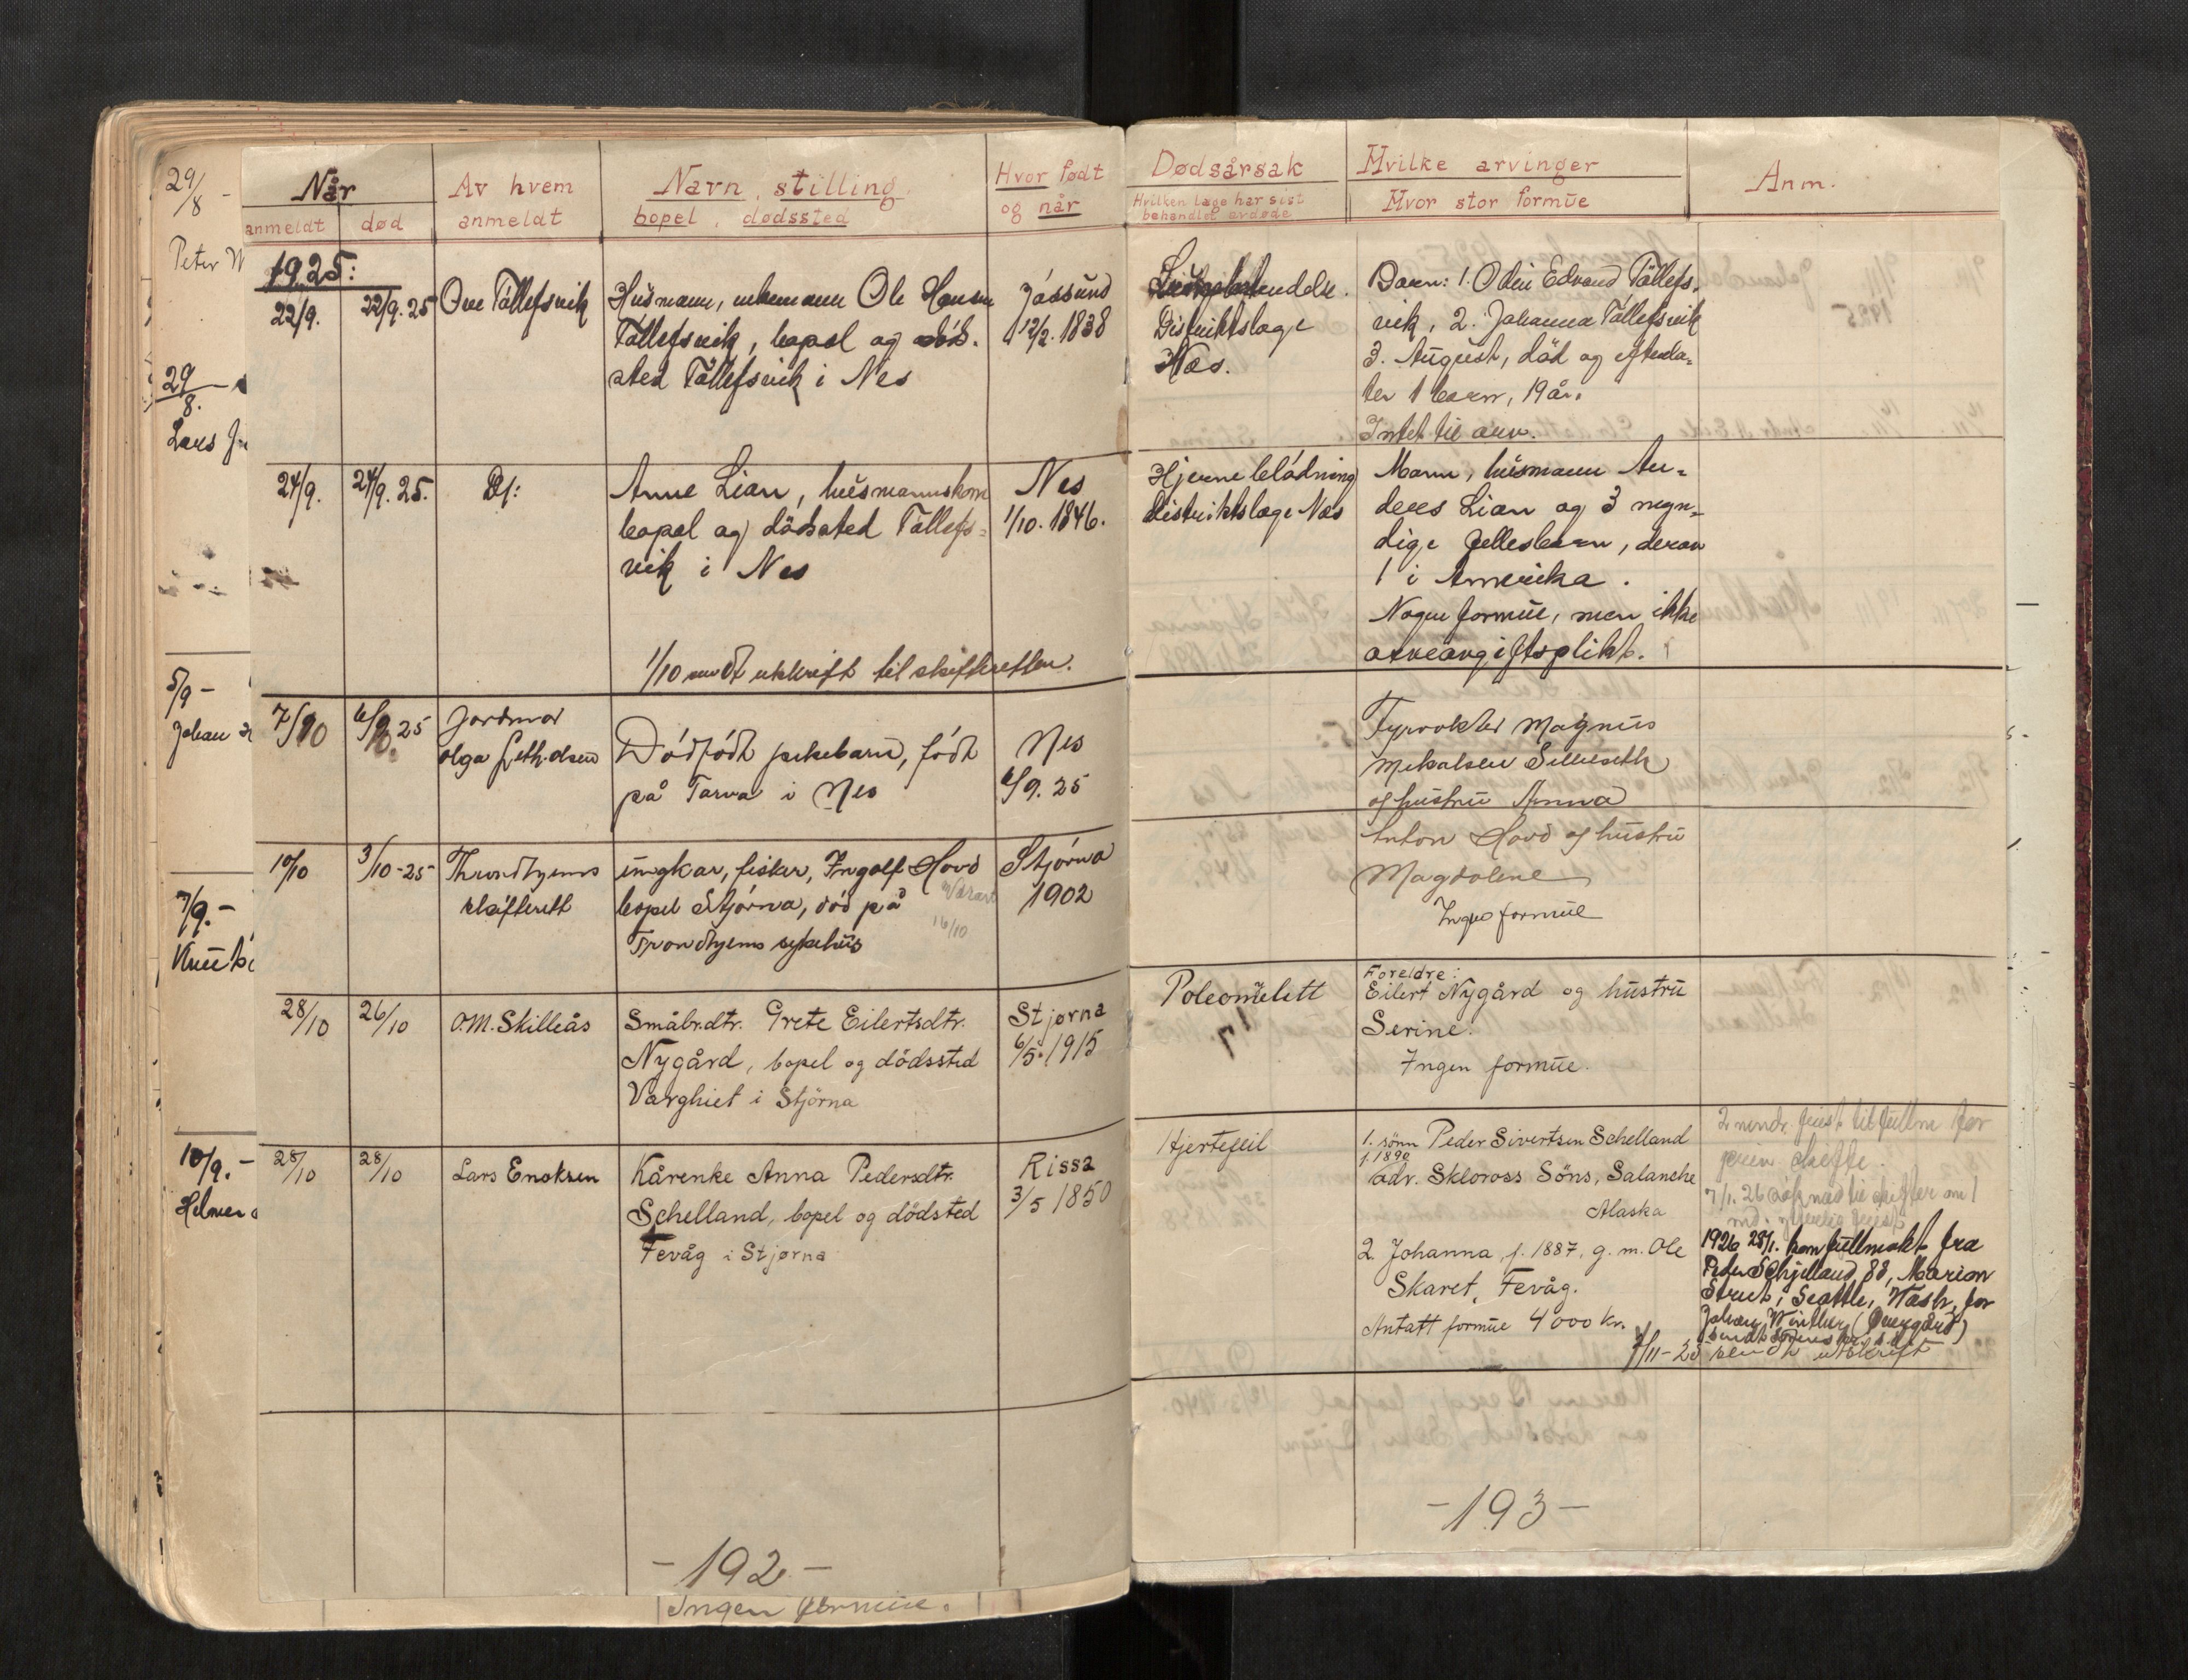 29/8 -
Peter
29/8. -
Lars
5/9 -
Johan
7/9. -
10/9. -
Helmer
Når
anmeldt
død
Av hvem
anmeldt
Navn, stilling
bopel, dødssted
Hvor født
og når
1925:
22/9.
22/9.25
Ove Tøllefsvik
Husmann, enkemann Ole Hansen
Tøllefsvik, bopel og døds-
sted Tøllefsvik i Nes
Jøssund
12/2. 1838
24/9.
24/9. 25.
Df:
Anne Lian, husmannskone
bopel og dødssted Tøllefs-
vik i Nes
Nes
1/10. 1846.
1/10 sendt utskrift til skifteretten.
7/10
6/9. 25
Jordmor
Olga
Dødfødt pikebarn, født
på Tarva i Nes
Nes
6/9. 25
10/10
3/10-25
Throndhjems
skifterett
ungkar, fisker, Ingolf Hovd
bopel Stjørna, død på
Trondhjems sykehus
16/10
Stjørna
1902
28/10
26/10
O.M. Skilleås
Småbr.dtr. Grete Eilertsdtr.
Nygård, bopel og dödssted
Varghiet i Stjörna
Stjørna
6/5. 1915
28/10
28/10
Lars Enoksen
Kårenke Anna Pedersdtr.
Schelland, bopel og dödsted
Fevåg i Stjørna
Rissa
3/5 1850
-192-
Ingen formue.
Dødsårsak
Hvilken læge har sist
behandlet avdøde
Hvilke arvinger
Hvor stor formue
Anm.
Distriktslæge
Næs.
Barn: 1. Odin Edvard Tøllefs-
vik, 2. Johanna Tøllefsvik
3. August, död og efterla-
ter 1 barn, 19 år.
Intet til arv.
Hjerneblødning
distriktslæge Næs
Mann, husmann An-
deres Lian og 3 myn-
dige fellesbarn, derav
1 i Amerika.
Nogen formue, men ikke
arveavgiftsplikt.
Fyrvokter Magnus
Mikalsen Selleseth
og hustru Anna
Anton Hovd og hustru
Magdalene
Ingen formue
Poleomielitt
Foreldre:
Eilert Nygård og hustru
Serine.
Ingen formue.
Hjertefeil
1. sönn Peder Sivertsen Schelland
f. 1890
adr. Skloross Söns, Salanche
Alaska
2. Johanna, f. 1887, g. m. Ole
Skaret, Fevåg.
Antatt formue 4000 kr.
2 mndr. frist til fullm for
1926 28/1. kom fullmakt fra
Peder Schjelland, 88, Marion
Street, Seattle, Wash, for
Johan Winther (Overgård)
sendt utskrift
-193-